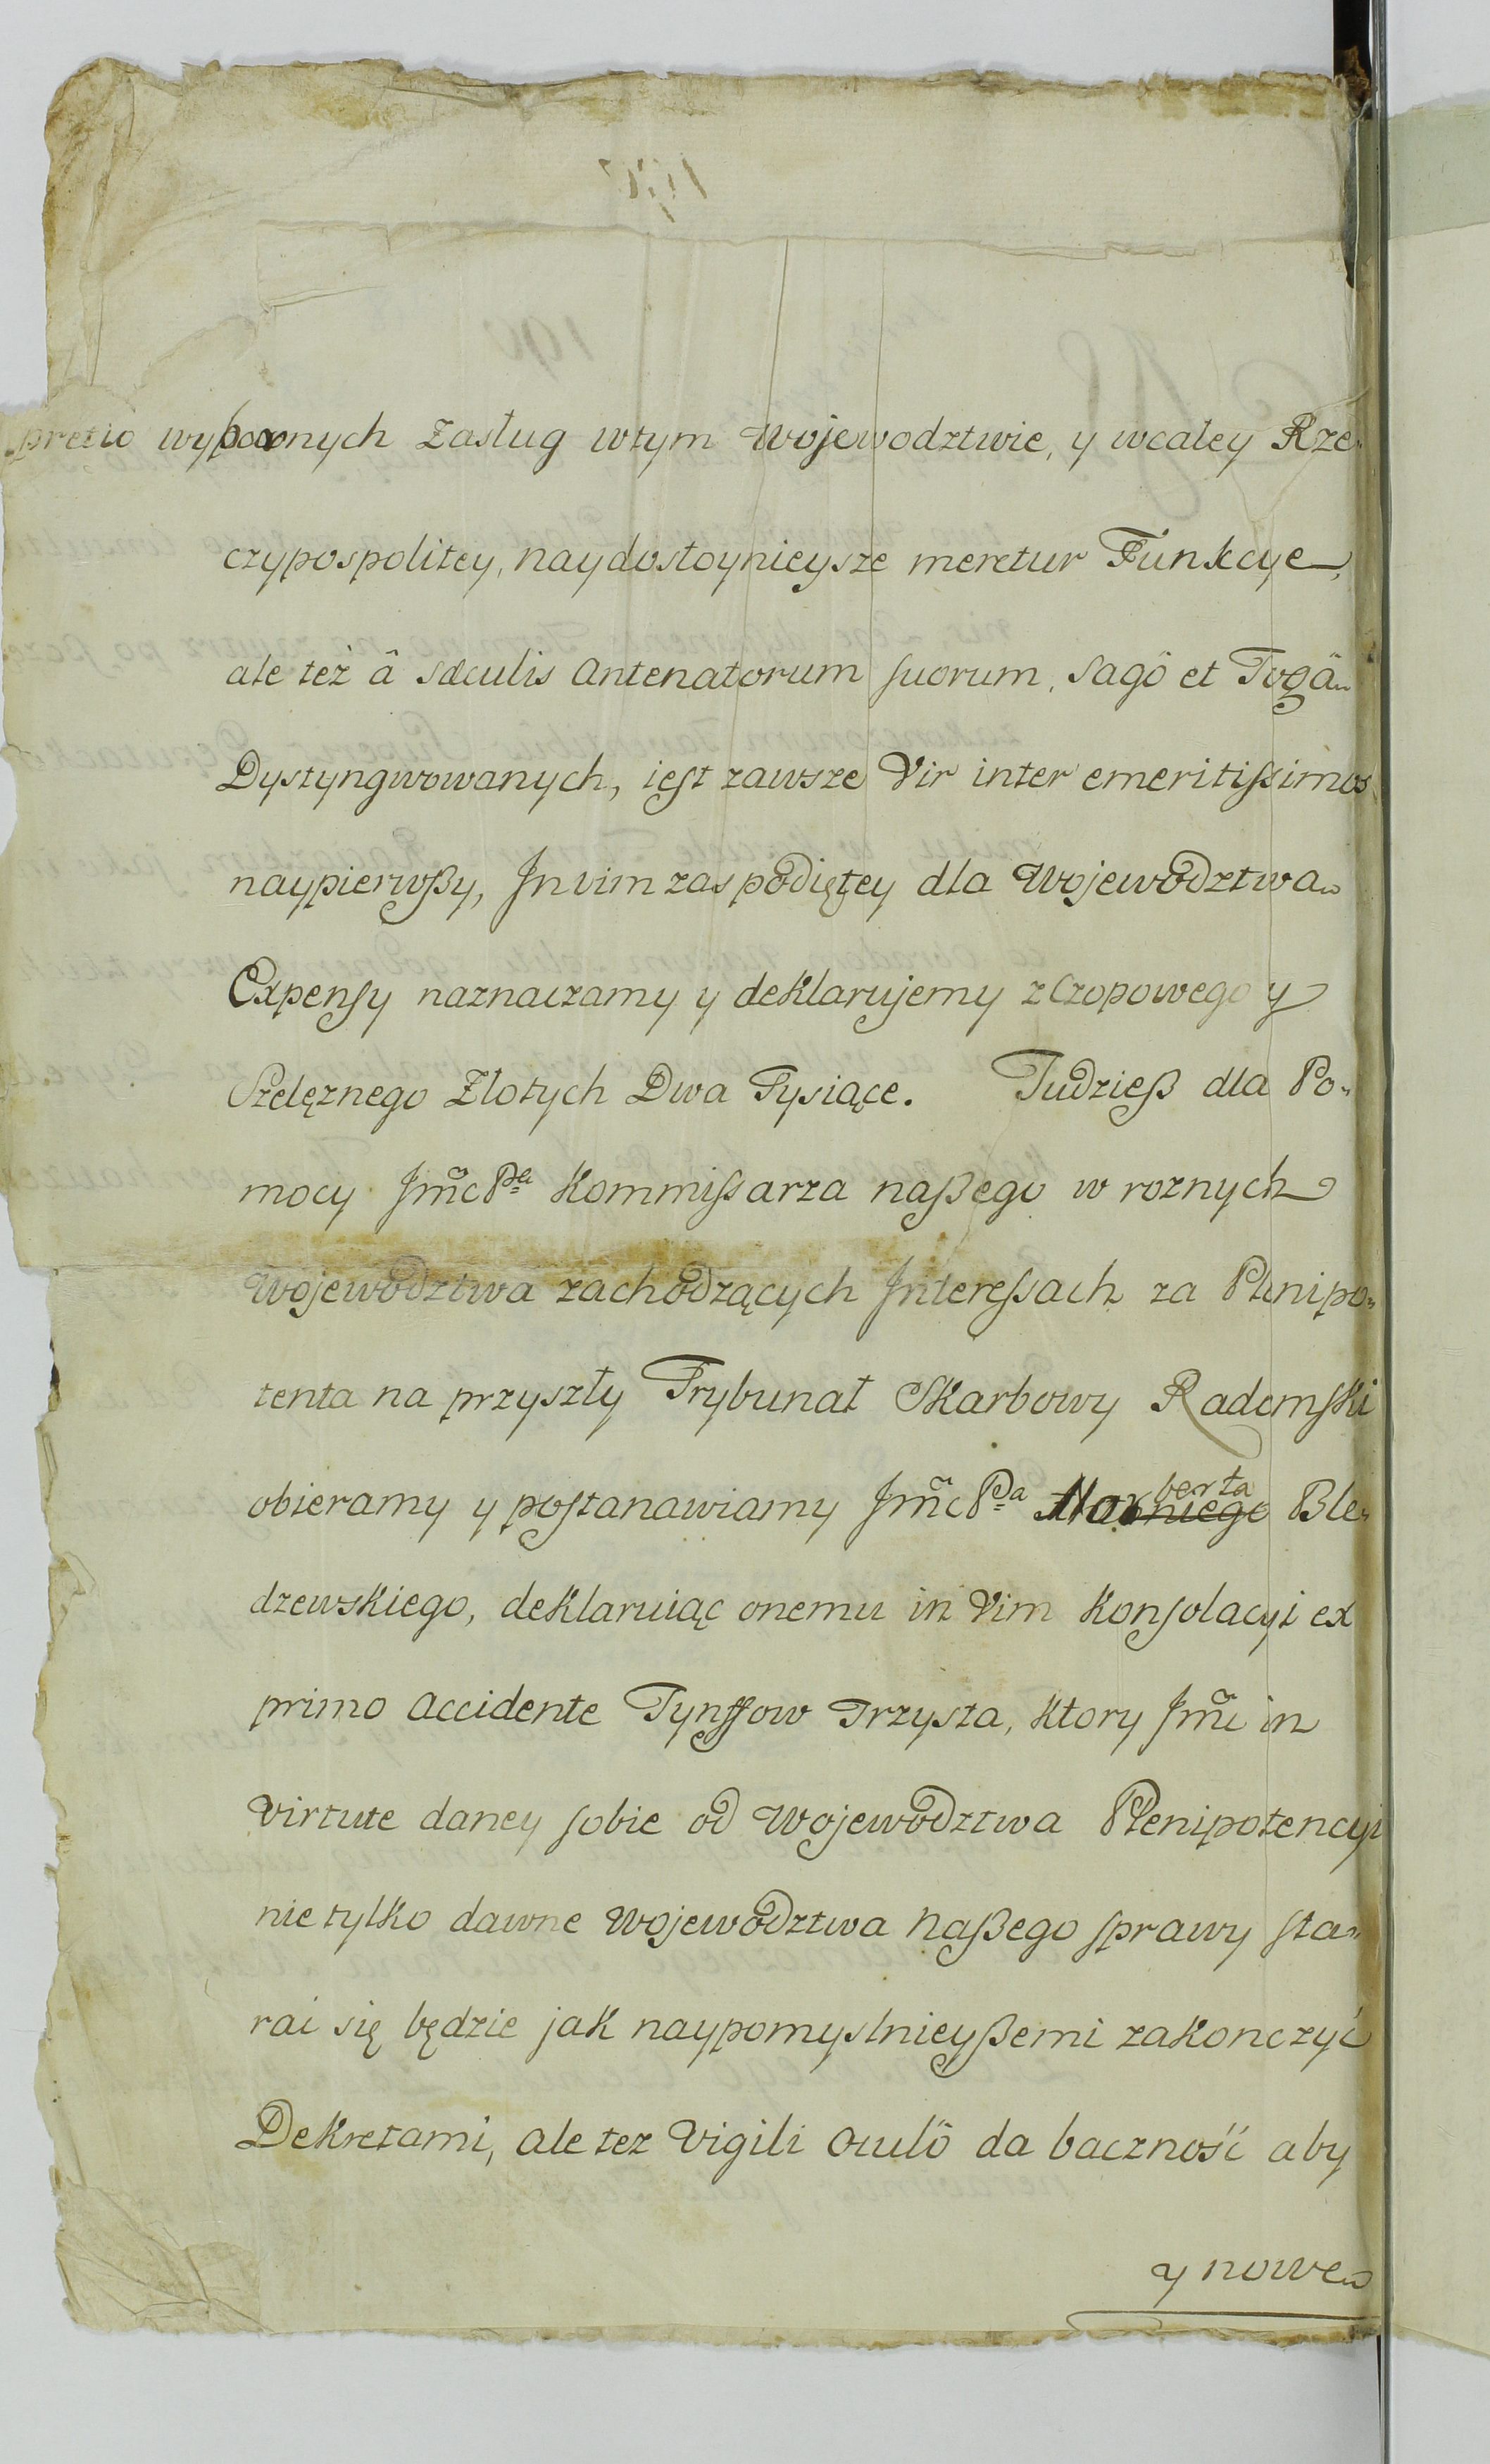 pretio wybornych Zasług wtym Wojewodztwie, y wcałey Rze„
czypospolitey, naydostoynieysze meretur Funkcye,
ale też â sæculis Antenatorum suorum, Sagô et Togâ
Dystyngwowanych, iest zawsze Vir inter emeritissimos
naypierwßy, In vim zas podiętey dla Wojewodztwa
Expensy naznaczamy y deklarujemy z Czopowego y
Szelęznego Złotych Dwa Tysiące. Tudzieß dla Po„
mocy Jm̃c Pa Kommissarza naßego w roznych
Wojewodztwa zachodzących Interessach za Plenipo„
tenta na przyszły Trybunał Skarbowy Radomski
obieramy y postanawiamy Jm̃c Pa Norberta Ble„
dzewskiego, deklaruiąc onemu in Vim Konsolacyi ex
primo Accidente Tynffow Trzysta, ktory Jm̃c in
virtute daney sobie od Wojewodztwa Plenipotencyi
nie tylko dawne Wojewodztwa Naßego sprawy sta„
rac się będzie jak naypomyslnieyßemi zakonczyć
Dekretami, ale tez Vigili Oculô da baczność aby
y nowe